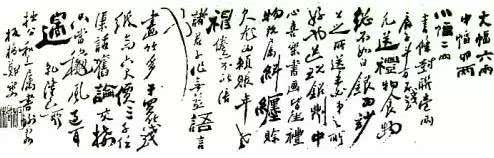 大幅六兩
中幅四兩
小幅二兩
書條對聯一兩
扇子斗方五錢
凡送禮物食物
總不如白銀為妙
公之所送未必弟之所
好也送現銀則中
心喜樂書畫皆佳禮
物既屬糾纏賒
欠尤為賴賬年老
神倦亦不能陪
諸君子作無益語言
也
畫竹多于買竹錢
紙高六尺價三千任
渠話舊論交接
只當秋風過耳
邊 乾隆己卯
拙公和上屬書謝客
板橋鄭燮